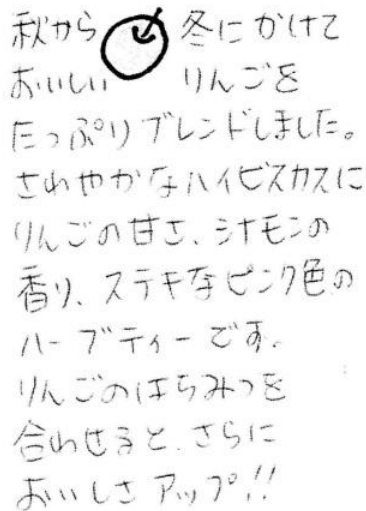 秋から 冬にかけて
おいしい りんごを
たっぷりブレンドしました。
さわやかなハイビスカスに
りんごの甘さ、シナモンの
香り、ステキなピンク色の
ハーブティーです。
りんごのはちみつを
合わせると、さらに
おいしさアップ!!